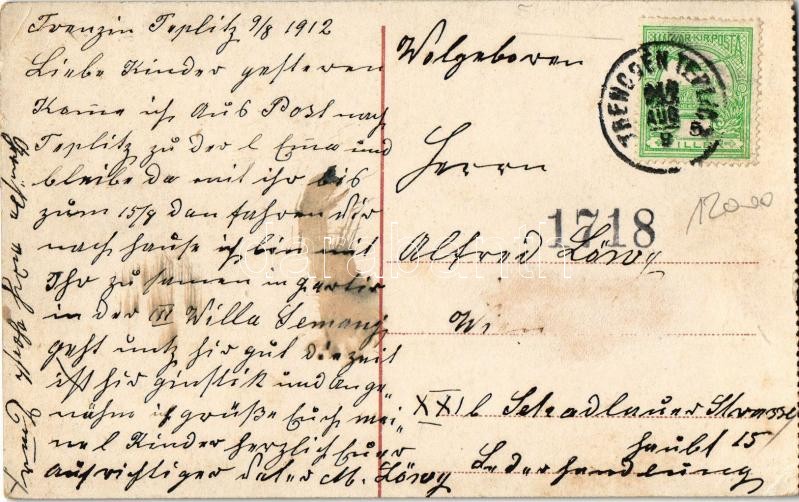 Trenzin Teplitz 9/8 1912
Liebe Kinder gesteren
Kame ich Aus Post nach
Teplitz zu der l Ema und
bleibe da mit ihr bis
zum 15/9 dan fahren wir
nach hause ich bin mit
Ihr zu samen in
in der Willa
geht untz hir gut die zeit
ist hir ginstik und ange-
nähm ich grüße Euch mei-
ne l Kinder herzlich Euer
aufrichtiger Vater M. Löwy
Wolgeboren
Herrn
Alfred Löwy
Wien
XXI b Stadlauer Strasse
haubt 15
Lederhandlung
1718
MAGYAR KIR. POSTA
TRENCSÉN TEPLIC
912
AUG
9
5
FILLÉR
12000
darabanth